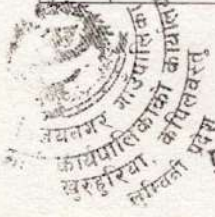 जयनगर गाउँपालिका
कार्यपालिकाको कार्यालय
खुरुहुरिया, कपिलवस्तु
लुम्बिनी प्रदेश